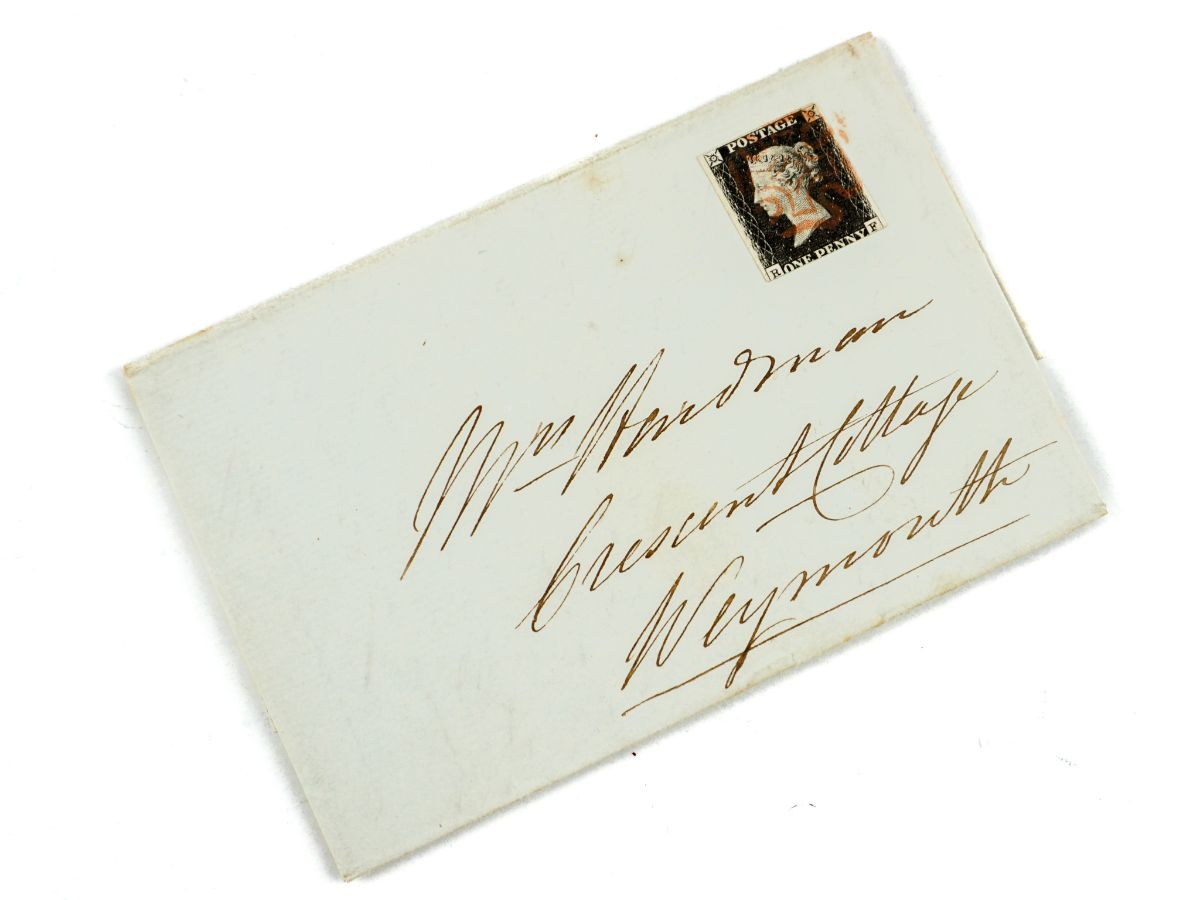 POSTAGE
R ONE PENNY F
Mrs
Crescent Cottage
Weymouth